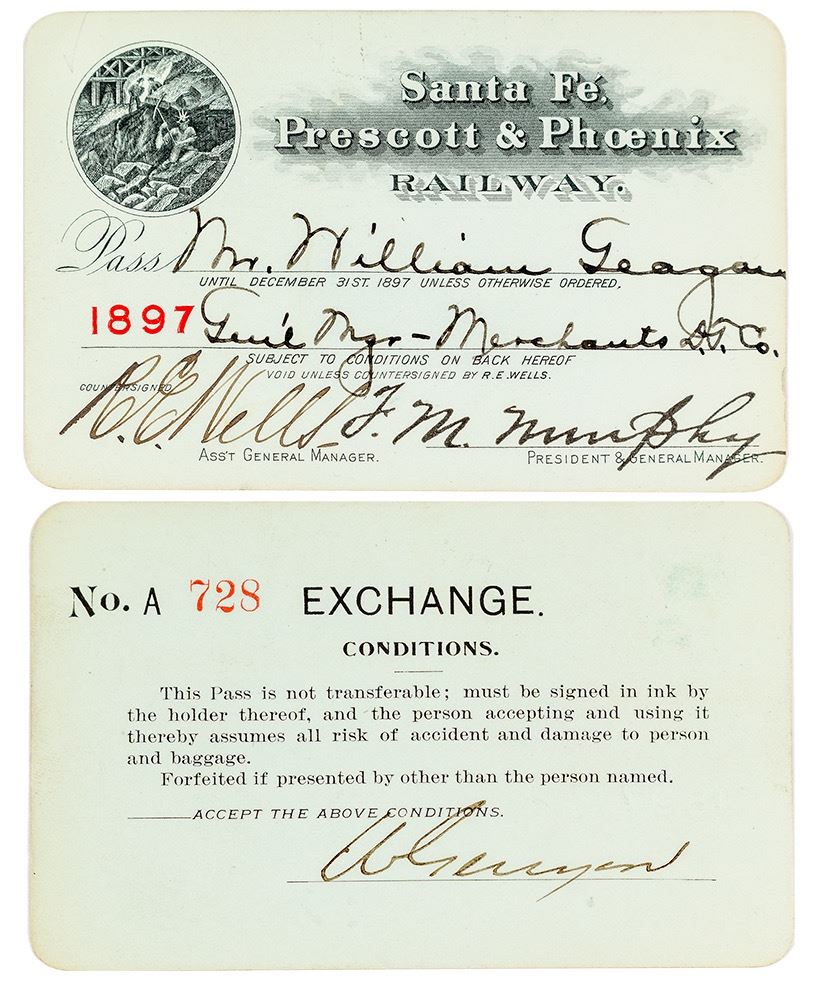 Santa Fé,
Prescott & Phœnix
RAILWAY.
Pass Mr. William Geagan
UNTIL DECEMBER 31ST. 1897 UNLESS OTHERWISE ORDERED,
1897 Gen'l Mgr - Merchants D.T. Co.
SUBJECT TO CONDITIONS ON BACK HEREOF
VOID UNLESS COUNTERSIGNED BY R.E. WELLS.
COUNTERSIGNED
R.E. Wells F. M. Murphy
ASS'T GENERAL MANAGER. PRESIDENT & GENERAL MANAGER.
No. A 728 EXCHANGE.
CONDITIONS.
This Pass is not transferable; must be signed in ink by
the holder thereof, and the person accepting and using it
thereby assumes all risk of accident and damage to person
and baggage.
Forfeited if presented by other than the person named.
ACCEPT THE ABOVE CONDITIONS.